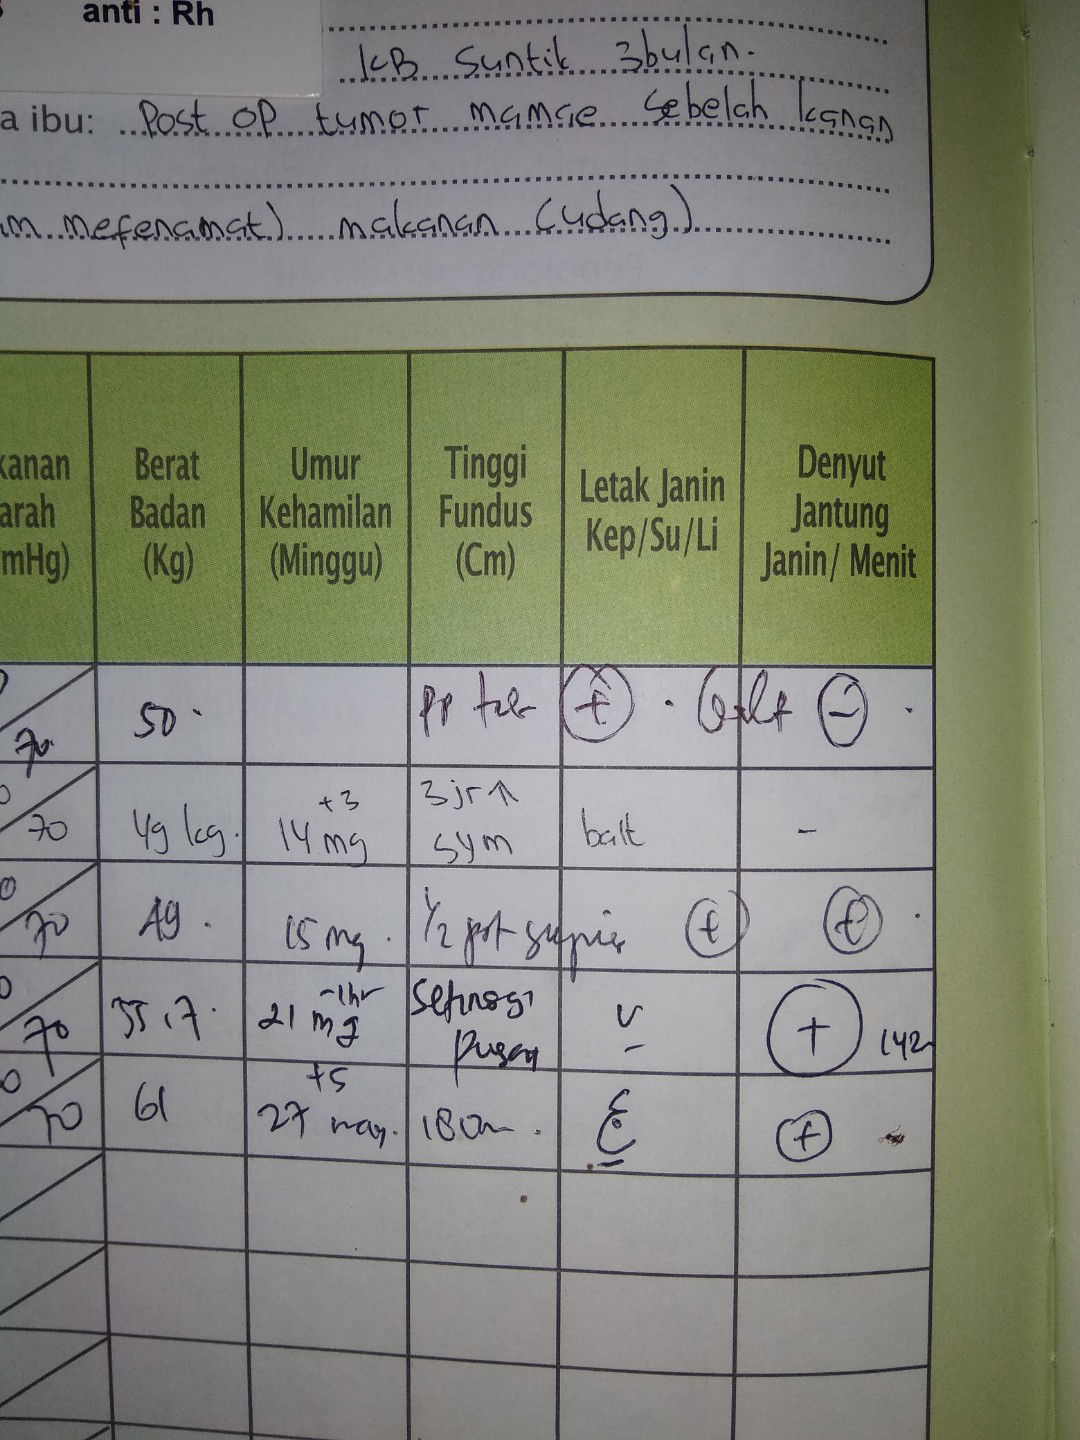 anti : Rh
KB Suntik 3bulan.
a ibu: Post OP tumor mamae sebelah kanan
am mefenamat) makanan (udang)
kanan
arah
mHg)
Berat
Badan
(Kg)
Umur
Kehamilan
(Minggu)
Tinggi
Fundus
(Cm)
Letak Janin
Kep/Su/Li
Denyut
Jantung
Janin/ Menit
70 50 + -
70 49 kg. 14 mg +3 3 jr ↑ sym ball -
70 49. 15 mg. 1/2 pot + +
70 55,7. 21 mg -1hr Setinggi pusat + 142
70 61 27 +5 18cm. +